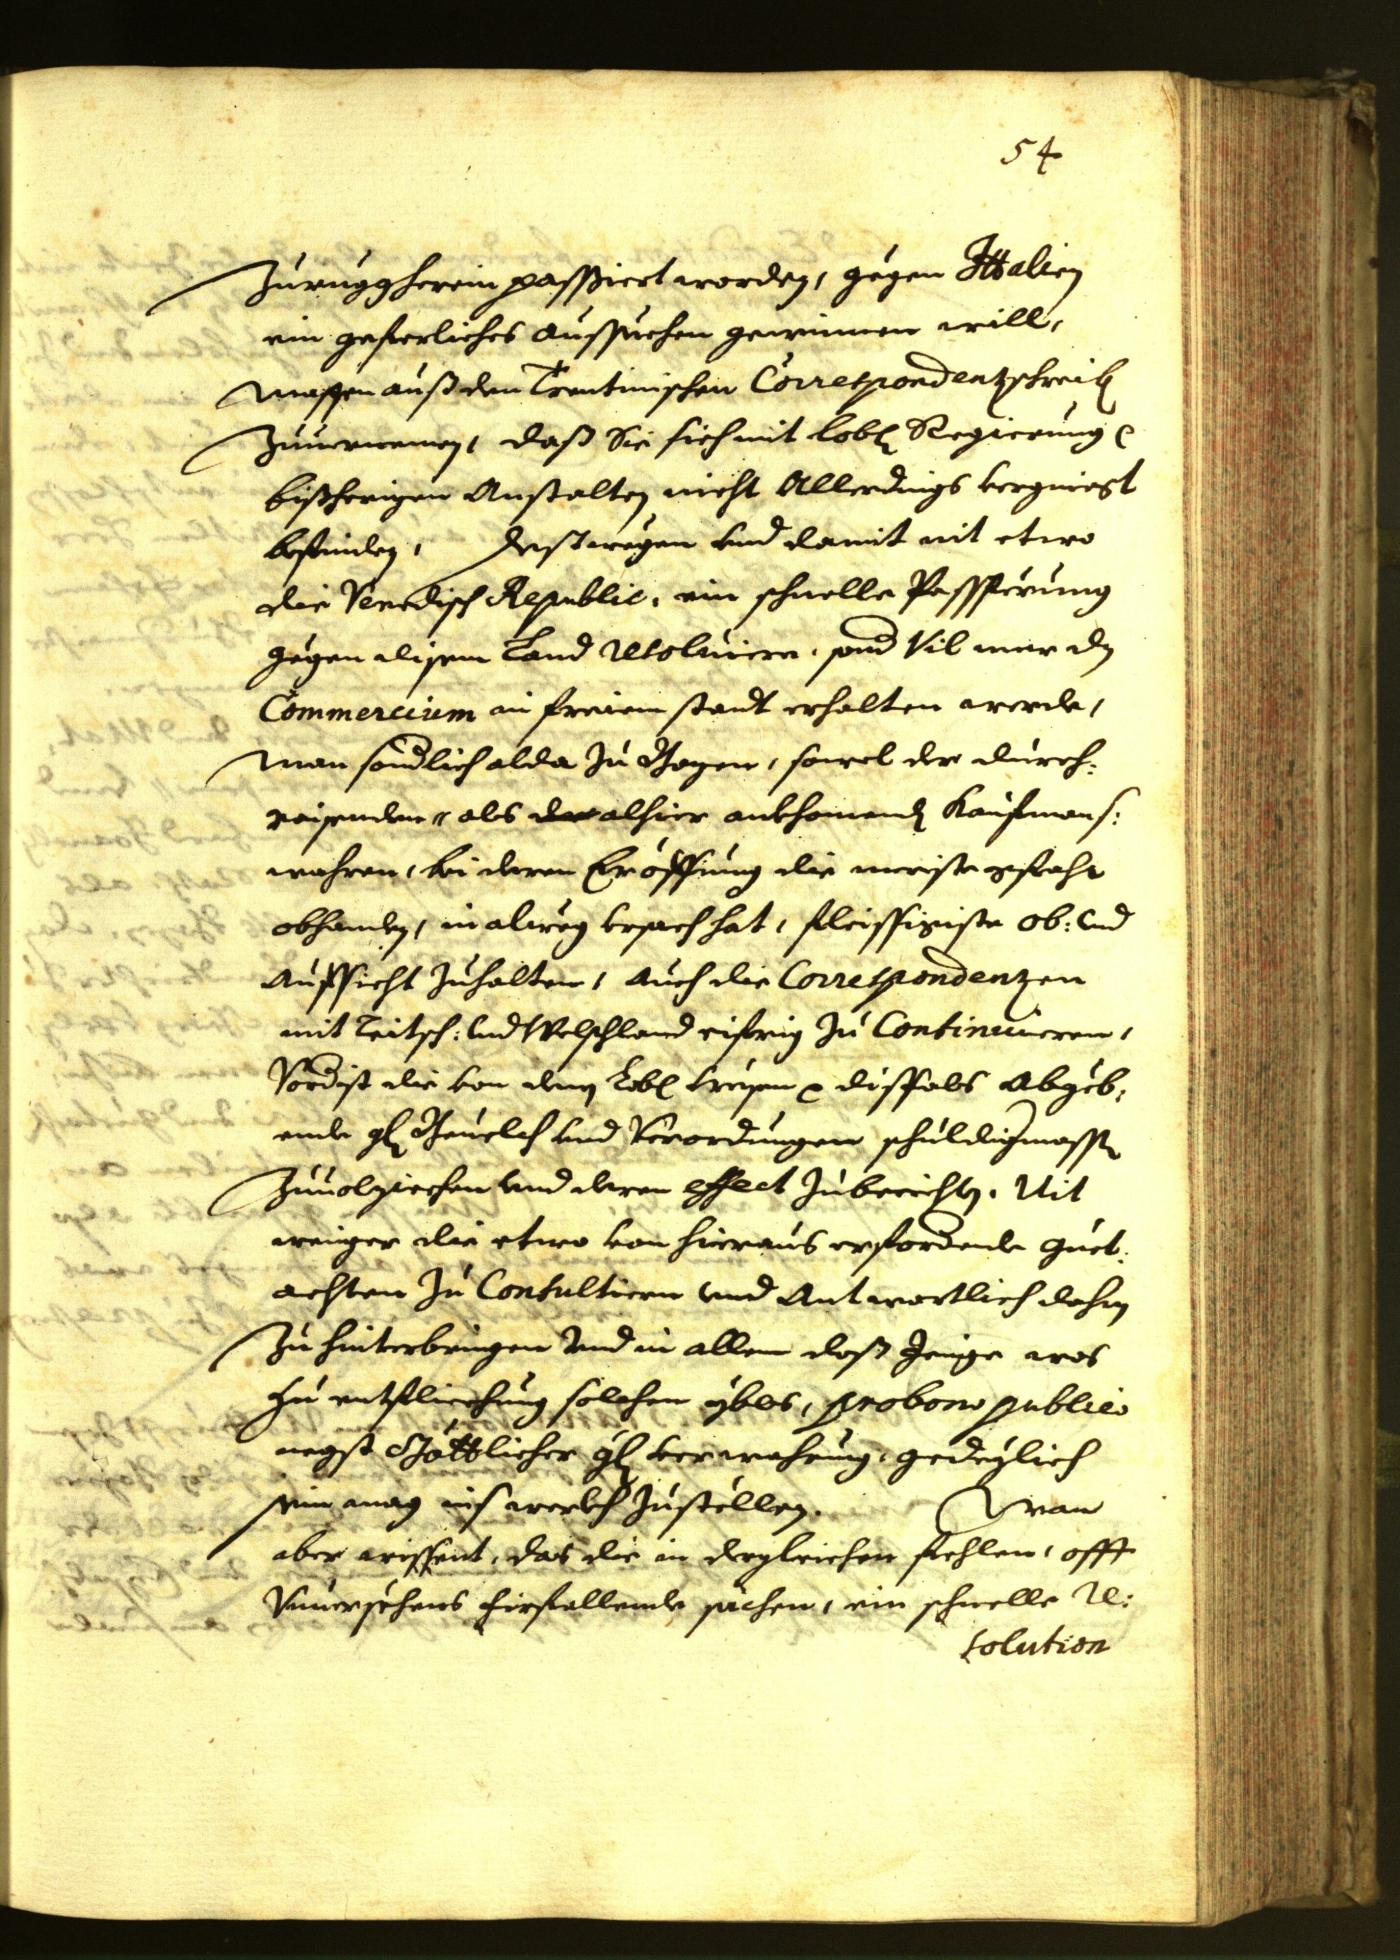 54
Zurugg herein passiert worden, gegen Ittalien
ein geferliches aussechen gewinnen will,
massen auß den Trentinischen Correspondentzschreib
Zuuernemen, daß Sie sich mit Lobl Regierung
bißherigen Anstalten nicht Allerdings vergniegt
befinden, desstwegen vnd damit nit etwo
die Venedisch Republic, ein schnelle Passsperung
gegen disem Land Resoluiern, sond Vil mer dz
Commercium in freiem standt erhalten werde,
man sondlich alda Zu Bozen, sowol der durch:
reisenden als der alhier ankhomend Kaufmans:
wahren, bei deren Eröffnung die meiste gefahr
obhanden, in alweg vrsach hat, fleissigiste ob: vnd
Aufsicht Zuhalten, Auch die Correspondenzen
mit Teitsch: vnd Welschland eifrig Zu Continuieren,
Vordist die von dem Lobl wesen dissfals Abgeb:
ende gl Beuelch vnd Verordnungen schuldigmassen
Zuuolziechen vnd deren effect Zuberichten, Nit
weniger die etwo von hieraus erfordende Guet:
achten Zu Consultiern vnd Antwortlich dahin
Zu hinterbringen vnd in allem dasß Jenige was
Zu entfliechung solchen ybls, pro bono publico
negst Göttlicher gl verwahrung, gedeylich
sein mag ins werkh Zustellen. Wan
aber wissent, das die in dergleichen fehlen, offt
Vnuersehens firfallende sachen, ein schnelle Re:
solution